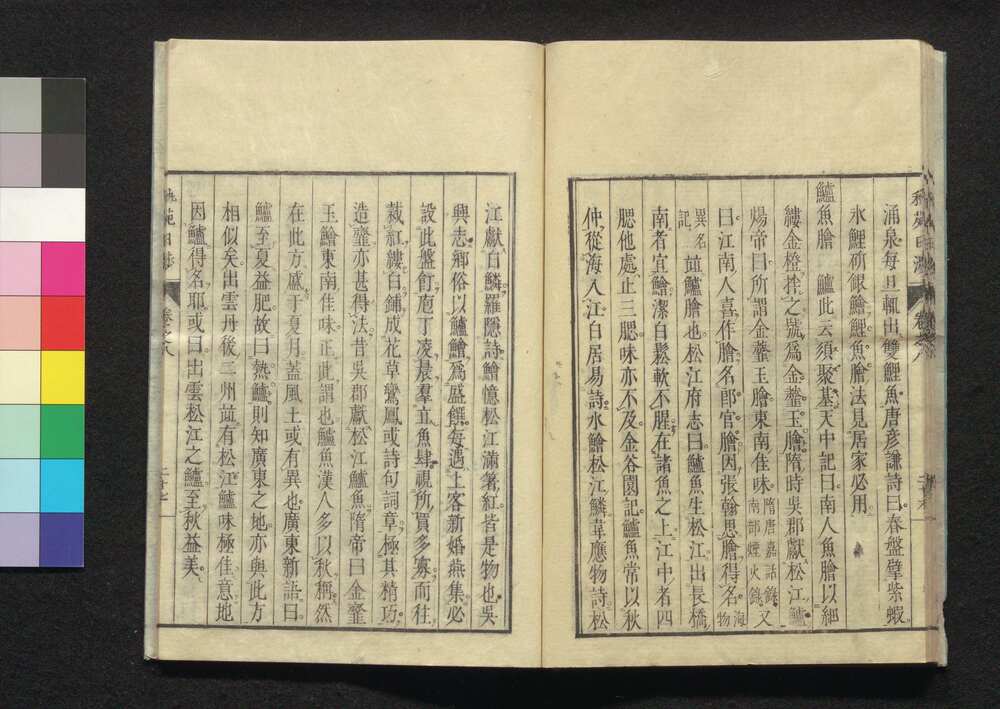 涌泉毎旦輒出雙鯉魚唐彦謙詩曰春盤擘紫蝦
氷鯉斫銀鱠鯉魚膾法見居家必用
鱸魚膾　鱸此云須聚基天中記曰南人魚膾以細
縷金橙拌之號爲金虀玉膾隋時呉郡獻松江鱸
煬帝曰所謂金虀玉膾東南佳味隋唐嘉話錄南部煙火錄又
曰江南人喜作膾名郎官膾因張翰思膾得名海物
異名記竝鱸膾也松江府志曰鱸魚生松江出長橋
南者宜鱠潔白鬆軟不腥在諸魚之上江中者四
腮他處止三腮味亦不及金谷園記鱸魚常以秋
仲從海入江白居易詩水鱠松江鱗韋應物詩松
江獻白鱗羅隱詩鱠憶松江滿箸紅皆是物也呉
興志郷俗以鱸鱠爲盛饌毎遇上客新婚燕集必
設此盤飣庖丁凌晨羣立魚肆視所買多寡而往
裁紅縷白鋪成花草鸞鳳或詩句詞章極其精巧
造虀亦甚得法昔呉郡獻松江鱸魚隋帝曰金虀
玉鱠東南佳味正此謂也鱸魚漢人多以秋稱然
在此方盛于夏月蓋風土或有異也廣東新語曰
鱸至夏益肥故曰熱鱸則知廣東之地亦與此方
相似矣出雲丹後二州竝有松江鱸味極佳意地
因鱸得名耶或曰出雲松江之鱸至秋益美
卷之八